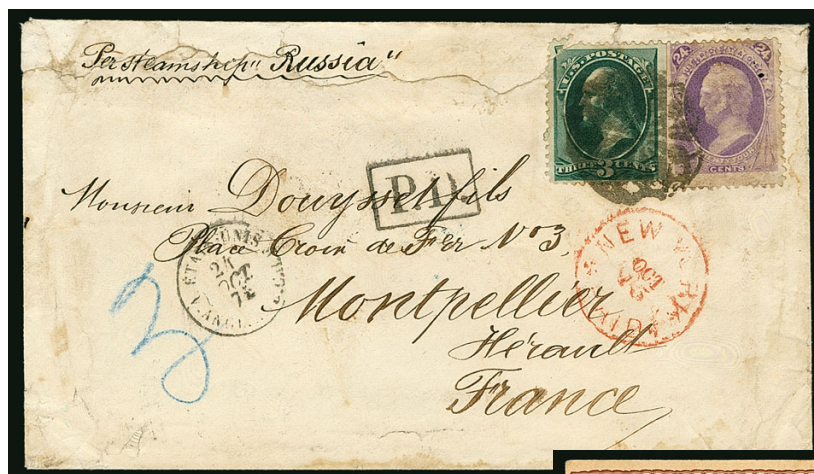 Per steamship "Russia"
U.S. POSTAGE
THREE 3 CENTS
24 24
CENTS
P.D.
Monsieur Douysset fils
Place Croix de Fer No 3,
Montpellier
Hérault
France
2
NEW YORK
OCT
PAID
OCT